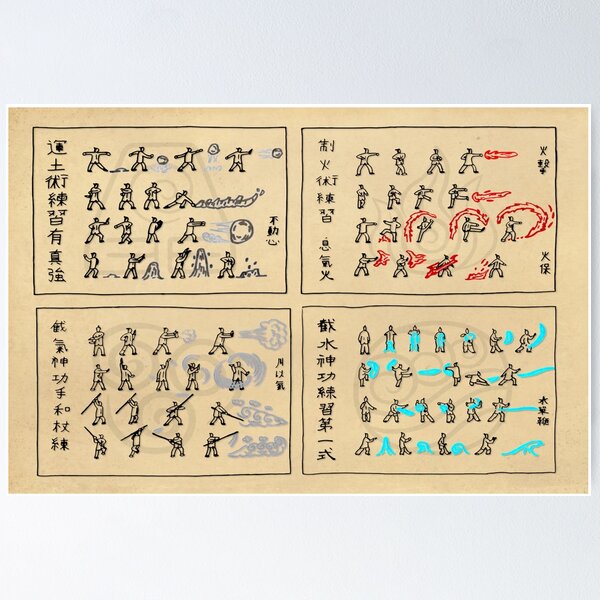 運土術練習有真強
不動心
制火術練習 息氣火
火擊
火保
截氣神功手和杖練
用以氣
截水神功練習第一式
水草鞭